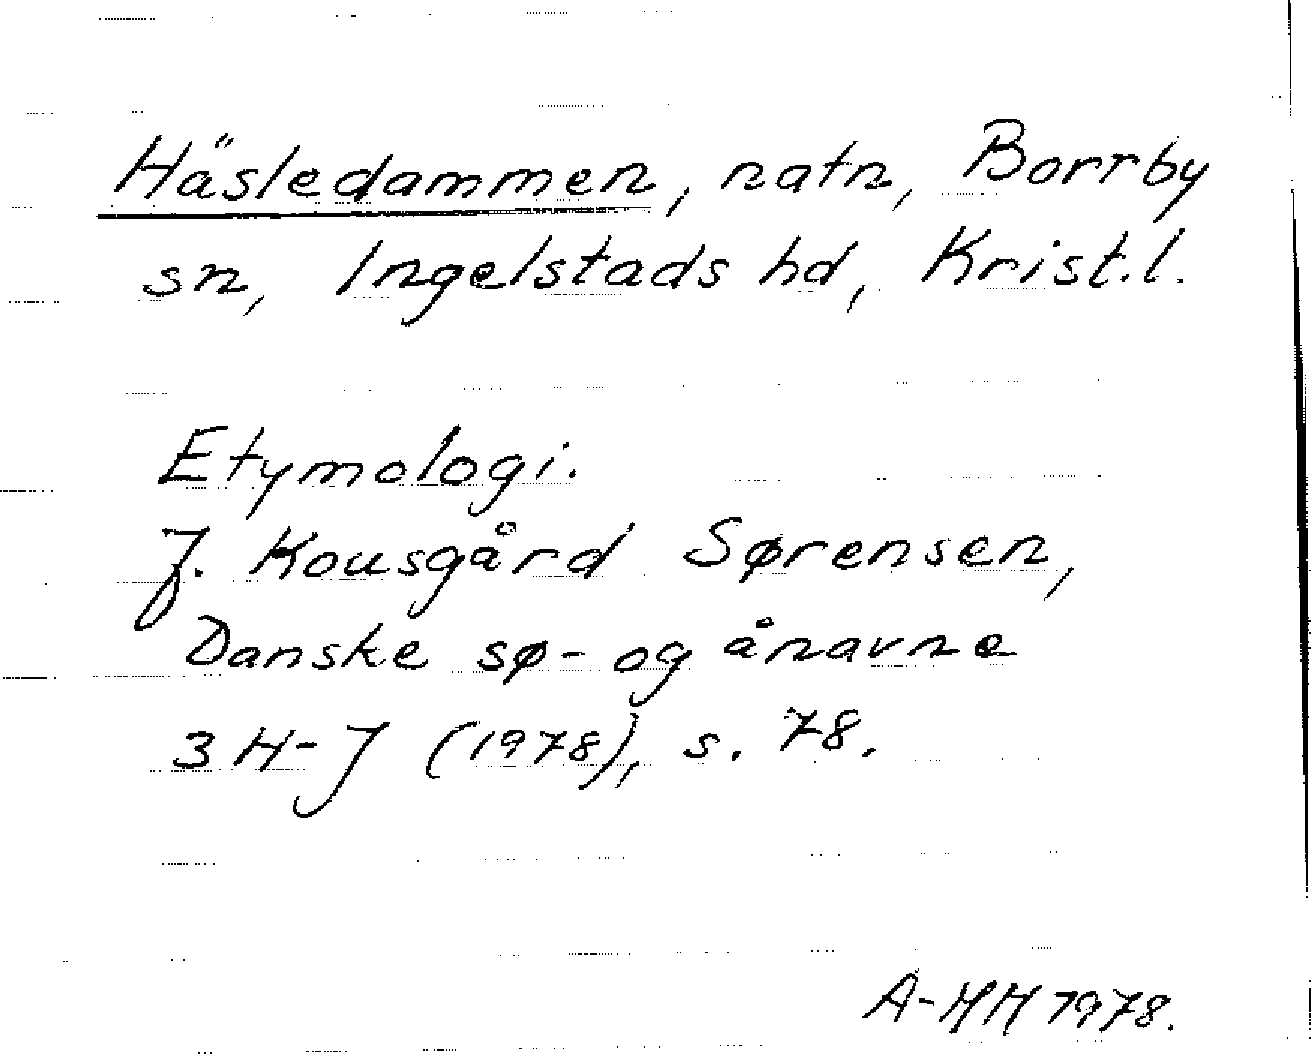 Häsledammen, natn, Borrby
sn, Ingelstads hd, Krist.l.
Etymologi.
J. Kousgård Sørensen,
Danske sø- og ånavne
3 H-J (1978), s. 78.
A-HH 1978.